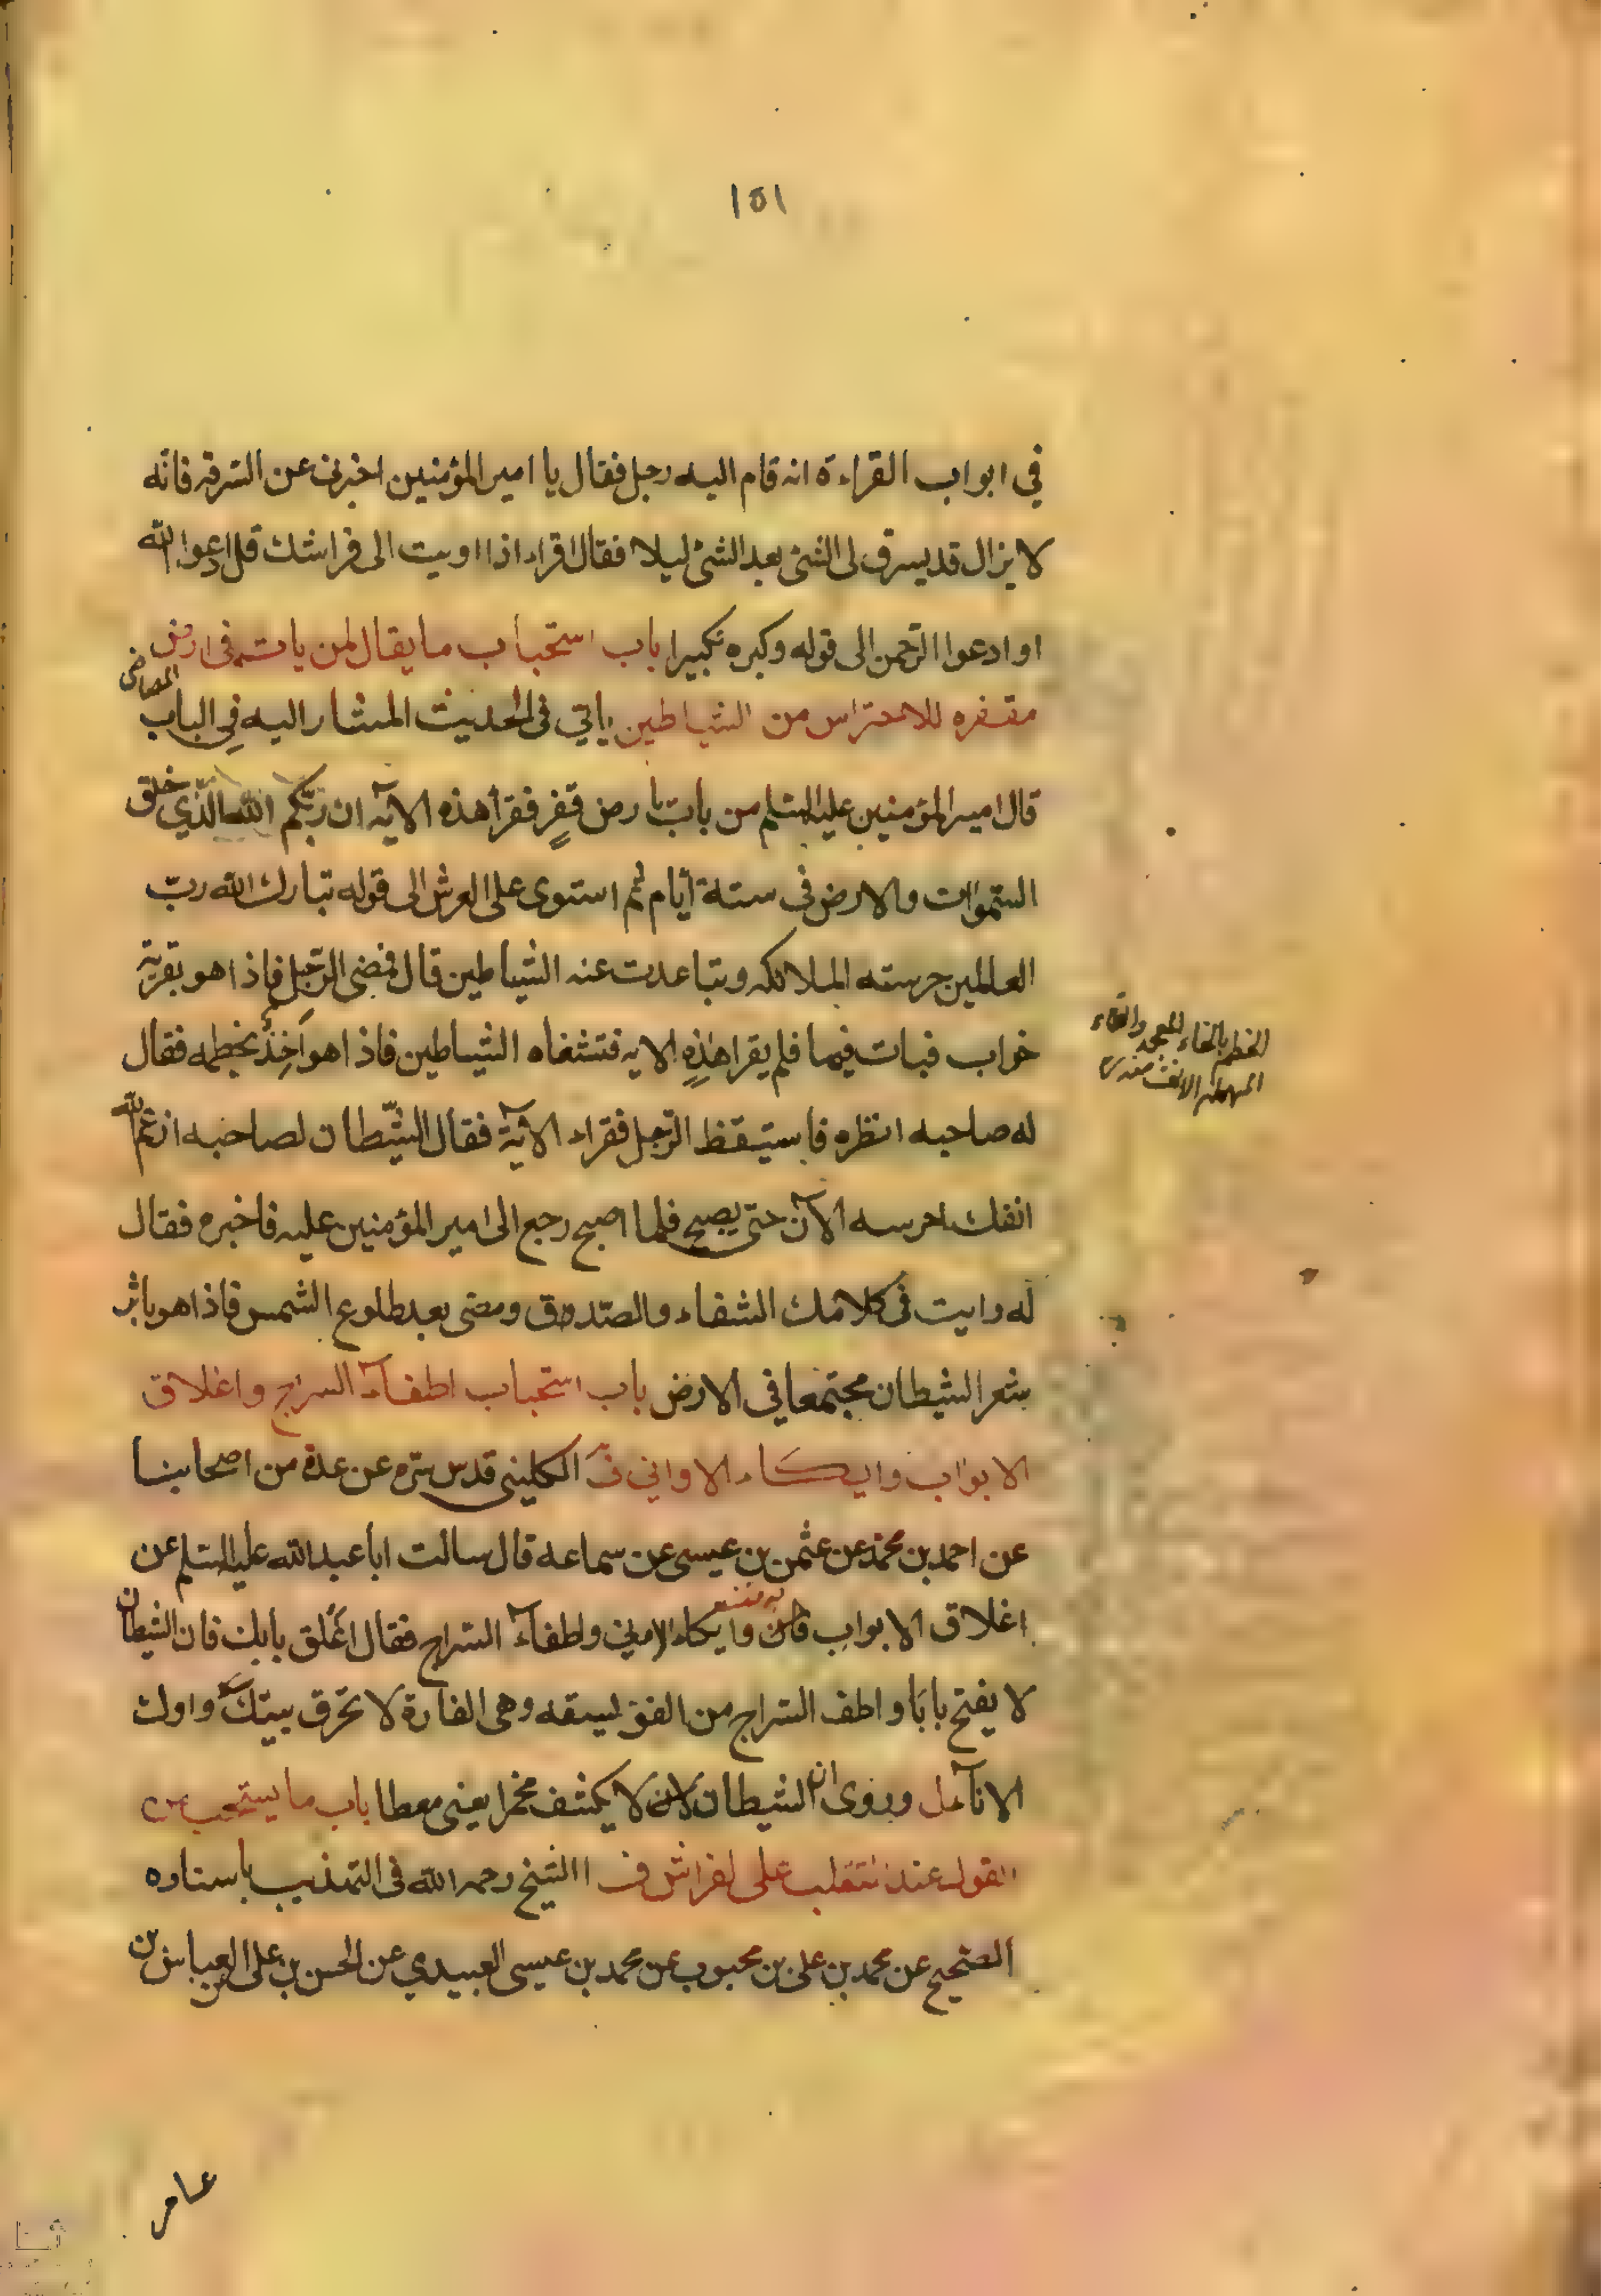 ١٥١
في ابواب القراءة انه قام اليه رجل فقال يا امير المؤمنين اخبرني عن السرقه فانّه
لا يزال قد يسرق لى الشئ بعد الشئ ليلا فقال اقراء اذا اويت الى فراشك قل ادعوا الله
او ادعوا الرّحمن الى قوله وكبره تكبيرا باب استحباب ما يقال لمن بات فى ارض
مقفره للاحتراس من الشياطين ياتي فى الحديث المشار اليه فِي الباب الماضى
قال امير المؤمنين عليه السّلم من بات بارض قفرٍ فقرأ هذه الآية ان ربّكم الله الّذي خلق
السّموات والارض فى ستة أيام ثم استوى على العرش الى قوله تبارك الله ربّ
العالمين حرسته الملائكه وتباعدت عنه الشياطين قال فمضى الرّجل فاذا هو بقرية
خراب فبات فيها فلم يقرا هٰذِهِ الايه فتغشاه الشياطين فاذا هو آخِذٌ بخطمه فقال
له صاحبه انظره فاستيقظ الرّجل فقراء الآية فقال الشّيطان لصاحبه ارغم الله
انفك احرسه الآن حتى يصبح فلما اصبح رجع الى امير المؤمنين عليه فاخبره فقال
له رايت فى كلامك الشفاء والصّدوق ومضى بعد طلوع الشمس فاذا هو باثر
شعر الشيطان مجتمعا في الارض باب استحباب اطفآء السراج واغلاق
الابواب وايكاء الاواني فَ الكليني قدس سره عن عدة من اصحابنا
عن احمد بن محمّد عن عثمن بن عيسى عن سماعه قال سالت ابا عبد الله عليه السّلم عن
اغلاق الابواب وايكاء الاواني واطفآء السّراج فقال اَغلق بابك فان الشيطان
لا يفتح بابَا واطف السّراج من الفويسقه وهى الفارة لا تحرق بيتك واوك
الانآء وروى ان الشيطان لا يكشف مخمرا يعنى مغطا باب ما يستحب من
القول عند التقلب على لفراش ف الشيخ رحمه الله فى التهذيب باسناده
الصّحيح عن محمد بن على بن محبوب عن محمد بن عيسى العبيدي عن الحسن بن على العباس بن
عامر
الخطم بالخاء المعجمه والطاء
المهمله الانف